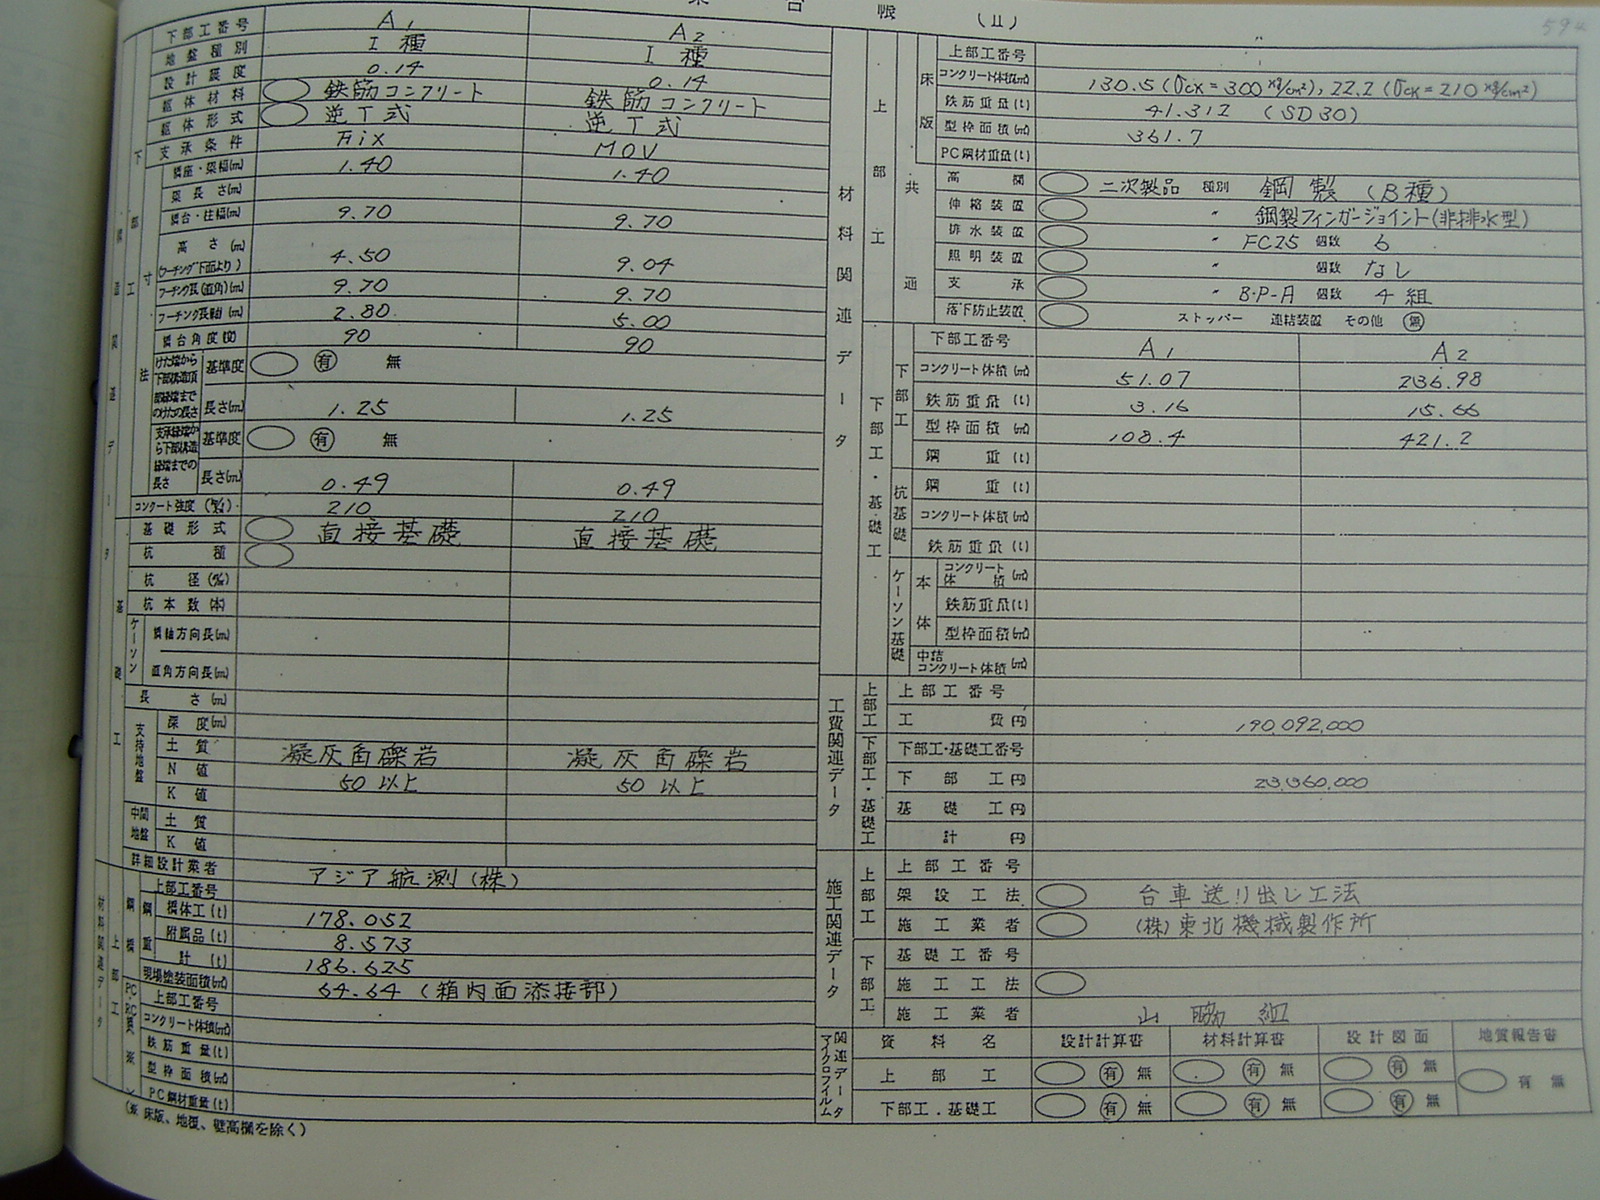 台 帳 (II)
594
下部工番号 A1 A2
地盤種別 I種 I種
設計震度 0.14 0.14
躯体材料 鉄筋コンクリート 鉄筋コンクリート
躯体形式 逆T式 逆T式
支承条件 Fix MOV
橋座・梁幅(m) 1.40 1.40
梁長さ(m)
橋台・柱幅(m) 9.70 9.70
高さ(m) (フーチング下面より) 4.50 9.04
フーチング長(直角)(m) 9.70 9.70
フーチング長軸(m) 2.80 5.00
橋台角度(度) 90 90
けた端から下部構造頂部縁端までのけたの長さ 基準度 有 無
長さ(m) 1.25 1.25
支承縁端から下部構造縁端までの長さ 基準度 有 無
長さ(m) 0.49 0.49
コンクート強度 210 210
基礎形式 直接基礎 直接基礎
杭種
杭径
杭本数(本)
ケーソン 橋軸方向長(m)
直角方向長(m)
長さ(m)
支持地盤 深度(m)
土質 凝灰角礫岩 凝灰角礫岩
N値 50以上 50以上
K値
中間地盤 土質
K値
詳細設計業者 アジア航測(株)
下部工
構造関連データ
寸法
基礎工
材料関連データ
上部工
鋼橋
鋼重
上部工番号
橋体工(t) 178.052
附属品(t) 8.573
計(t) 186.625
現場塗装面積(㎡) 64.64 (箱内面添接部)
PC・RC橋 ※
上部工番号
コンクリート体積(㎥)
鉄筋重量(t)
型枠面積(㎡)
PC鋼材重量(t)
(※ 床版、地覆、壁高欄を除く)
材料関連データ
上部工
共通
床版
上部工番号
コンクリート体積(㎥) 130.5 (σck=300kg/cm²), 22.2 (σck=210kg/cm²)
鉄筋重量(t) 41.312 (SD30)
型枠面積(㎡) 361.7
PC鋼材重量(t)
高欄 二次製品 種別 鋼製 (B種)
伸縮装置 〃 鋼製フィンガージョイント(非排水型)
排水装置 〃 FC25 個数 6
照明装置 〃 個数 なし
支承 〃 B・P-A 個数 4組
落下防止装置 ストッパー 連結装置 その他 無
下部工・基礎工
下部工
下部工番号 A1 A2
コンクリート体積(㎥) 51.07 236.98
鉄筋重量(t) 3.16 15.66
型枠面積(㎡) 108.4 421.2
鋼重(t)
杭基礎
鋼重(t)
コンクリート体積(㎥)
鉄筋重量(t)
ケーソン基礎
本体
コンクリート体積(㎥)
鉄筋重量(t)
型枠面積(㎡)
中詰コンクリート体積(㎥)
工費関連データ
上部工
上部工番号
工費(円) 190,092,000
下部工・基礎工
下部工・基礎工番号
下部工(円) 23,360,000
基礎工(円)
計 円
施工関連データ
上部工
上部工番号
架設工法 台車送り出し工法
施工業者 (株)東北機械製作所
下部工
基礎工番号
施工工法
施工業者 山脇組
関連データ マイクロフィルム
資料名 設計計算書 材料計算書 設計図面 地質報告書
上部工 有 無 有 無 有 無 有 無
下部工・基礎工 有 無 有 無 有 無